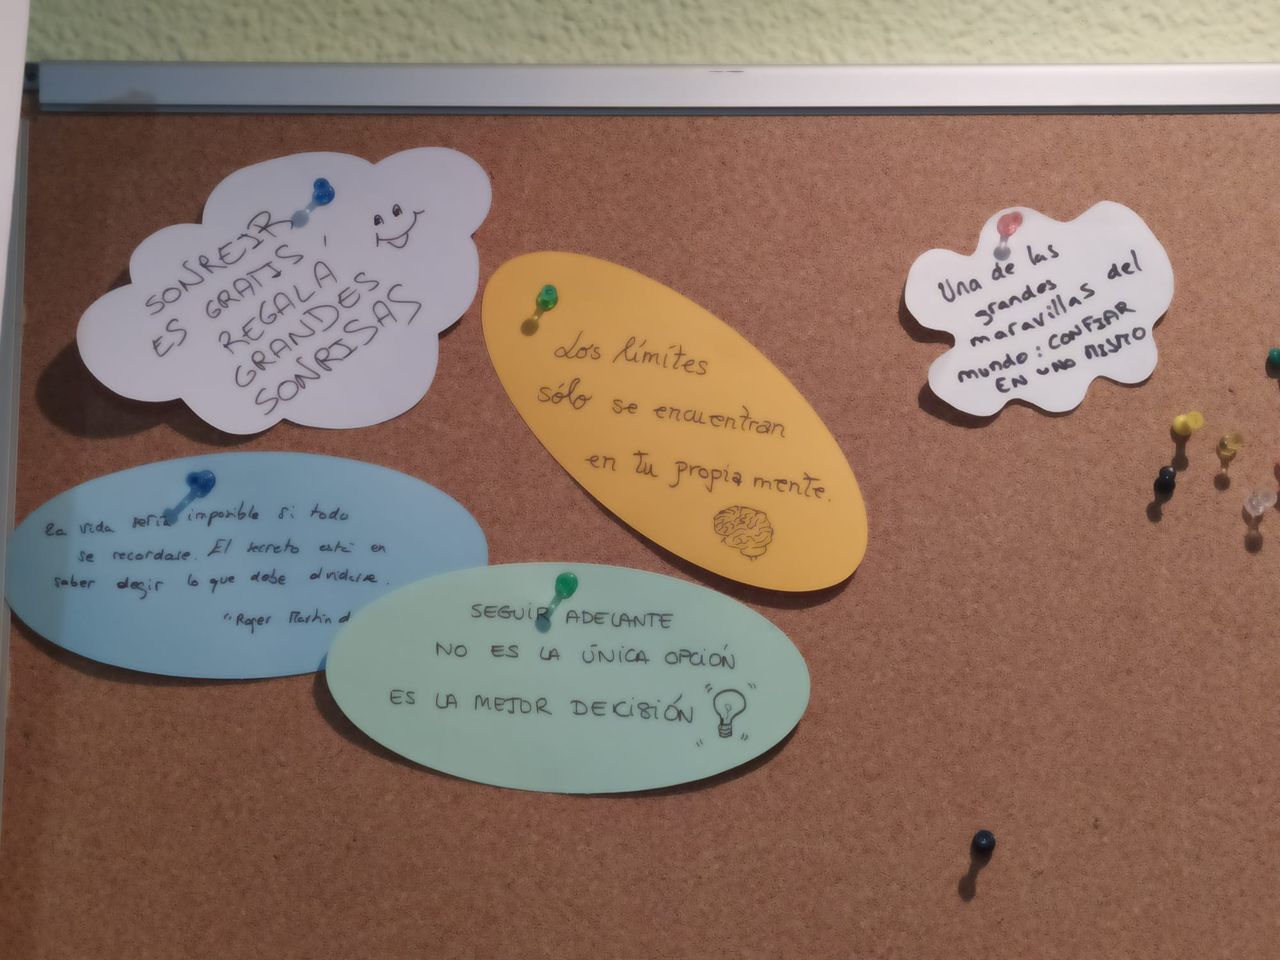 SONREIR
ES GRATIS,
REGALA
GRANDES
SONRISAS
Los límites
sólo se encuentran
en tu propia mente.
Una de las
grandes
maravillas del
mundo: CONFIAR
EN UNO MISMO
La vida sería imposible si todo
se recordase. El secreto está en
saber elegir lo que debe olvidarse.
"Roger Martin d
SEGUIR ADELANTE
NO ES LA ÚNICA OPCIÓN
ES LA MEJOR DECISIÓN